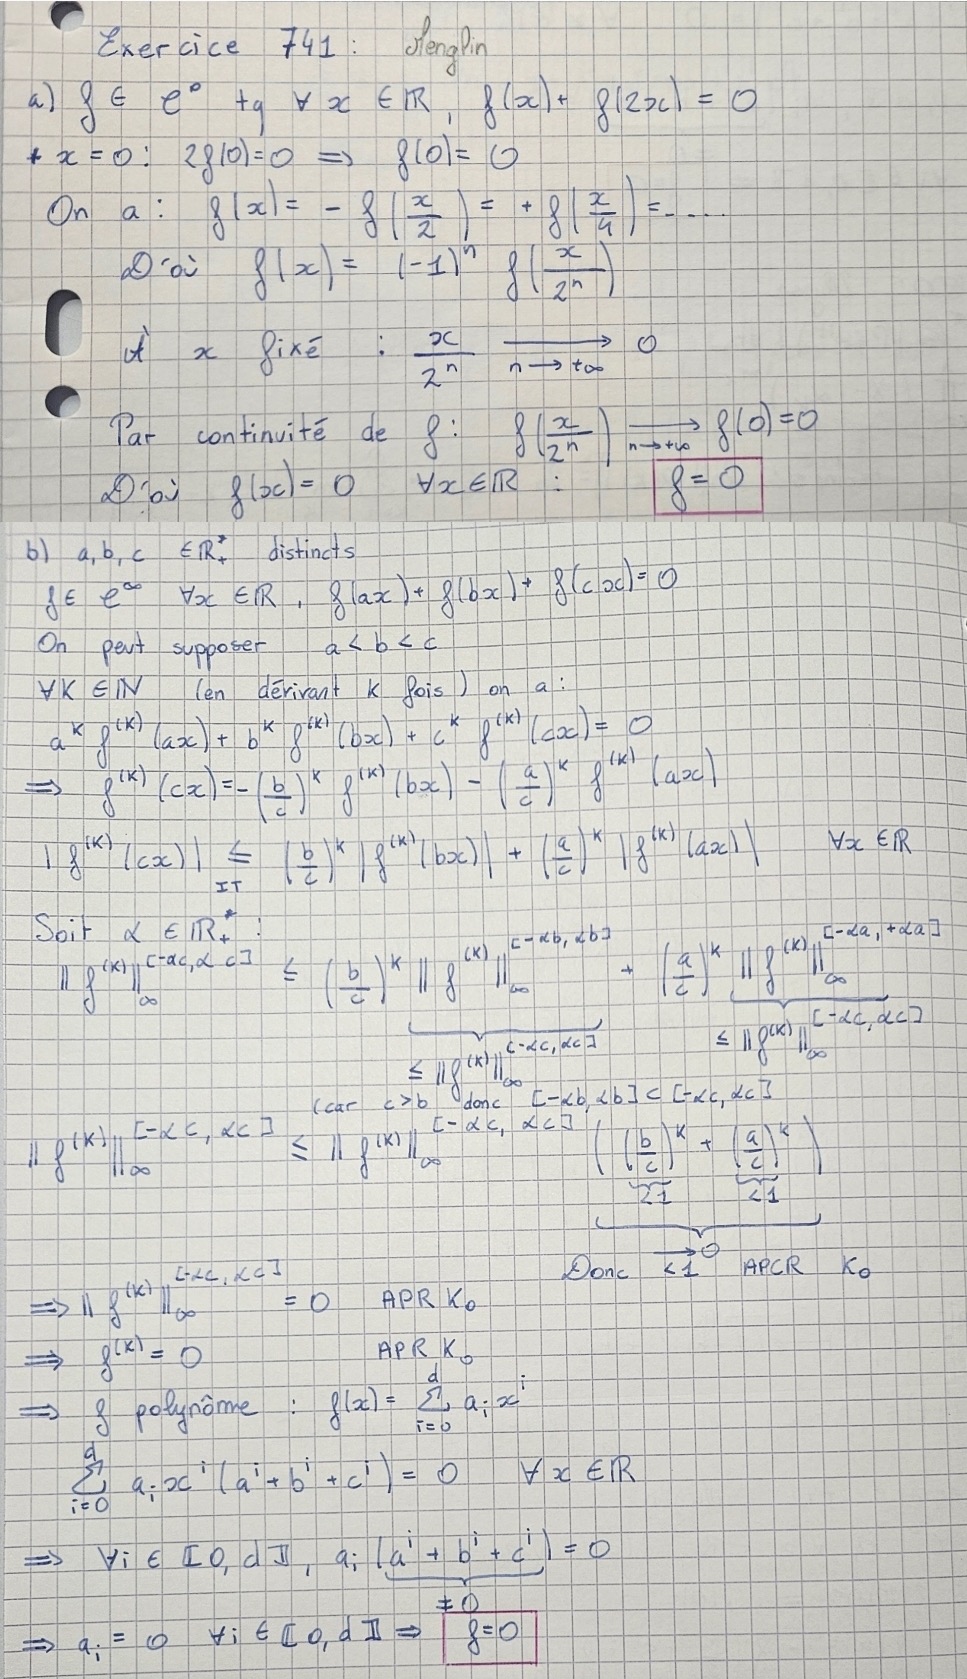 Exercice 741 : Menglin
a) f ∈ C⁰ tq ∀ x ∈ ℝ, f(x) + f(2x) = 0
* x = 0 : 2f(0) = 0 ⟹ f(0) = 0
On a : f(x) = - f(x/2) = + f(x/4) = .....
D'où f(x) = (-1)^n f(x/2^n)
À x fixé : x/2^n ⟶ 0 n → +∞
Par continuité de f : f(x/2^n) ⟶ f(0) = 0 n → +∞
D'où f(x) = 0 ∀x ∈ ℝ : f = 0
b) a, b, c ∈ ℝ₊* distincts
f ∈ C^∞ ∀x ∈ ℝ, f(ax) + f(bx) + f(cx) = 0
On peut supposer a < b < c
∀K ∈ ℕ (en dérivant K fois) on a :
a^K f^(K)(ax) + b^K f^(K)(bx) + c^K f^(K)(cx) = 0
⟹ f^(K)(cx) = -(b/c)^K f^(K)(bx) - (a/c)^K f^(K)(ax)
|f^(K)(cx)| ≤ (b/c)^K |f^(K)(bx)| + (a/c)^K |f^(K)(ax)| ∀x ∈ ℝ
IT
Soit α ∈ ℝ₊* :
‖f^(K)‖_∞^[-αc, αc] ≤ (b/c)^K ‖f^(K)‖_∞^[-αb, αb] + (a/c)^K ‖f^(K)‖_∞^[-αa, +αa]
≤ ‖f^(K)‖_∞^[-αc, αc] ≤ ‖f^(K)‖_∞^[-αc, αc]
(car c > b donc [-αb, αb] ⊂ [-αc, αc]
‖f^(K)‖_∞^[-αc, αc] ≤ ‖f^(K)‖_∞^[-αc, αc] ((b/c)^K + (a/c)^K)
<1 <1
⟶ 0
Donc <1 APCR K₀
⟹ ‖f^(K)‖_∞^[-αc, αc] = 0 APR K₀
⟹ f^(K) = 0 APR K₀
⟹ f polynôme : f(x) = ∑_{i=0}^{d} a_i x^i
∑_{i=0}^{d} a_i x^i (a^i + b^i + c^i) = 0 ∀ x ∈ ℝ
⟹ ∀i ∈ ⟦0, d⟧, a_i (a^i + b^i + c^i) = 0
≠ 0
⟹ a_i = 0 ∀i ∈ ⟦0, d⟧ ⟹ f = 0